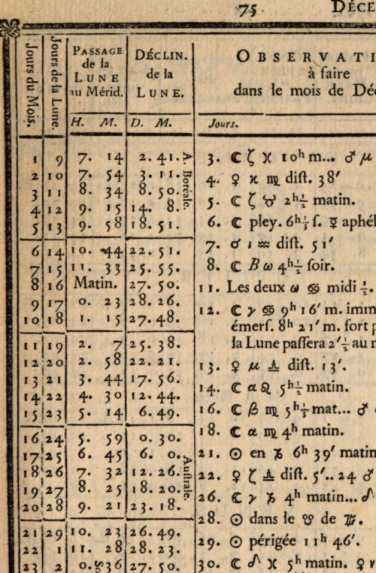 75 DÉCE
Jours du Mois. Jours de la Lune. PASSAGE de la LUNE au Mérid. DÉCLIN. de la LUNE. OBSERVATI
à faire
dans le mois de Déc
H. M. D. M. Jours.
1 9 7. 14 2. 41. A.
2 10 7. 54 3. 11. Boréale.
3 11 8. 34 8. 50.
4 12 9. 15 14. 8.
5 13 9. 58 18. 51.
6 14 10. 44 22. 51.
7 15 11. 33 25. 55.
8 16 Matin. 27. 50.
9 17 0. 23 28. 26.
10 18 1. 15 27. 48.
11 19 2. 7 25. 38.
12 20 2. 58 22. 21.
13 21 3. 44 17. 56.
14 22 4. 30 12. 44.
15 23 5. 14 6. 49.
16 24 5. 59 0. 30.
17 25 6. 45 6. 0. Australe.
18 26 7. 32 12. 26.
19 27 8. 25 18. 20.
20 28 9. 21 23. 18.
21 29 10. 23 26. 49.
22 1 11. 28 28. 23.
23 2 0. 36 27. 50.
3. ☾ ζ ♓ 10h m... ♂ μ
4. ♀ ♓ ♍ dist. 38'
5. ☾ ζ ♉ 2h½ matin.
6. ☾ pley. 6h½ s. ☿ aphél
7. ♂ ι ♒ dist. 51'
8. ☾ B ω 4h½ soir.
11. Les deux ω ♋ midi ½.
12. ☾ γ ♋ 9h 16' m. imm
émers. 8h 21' m. fort p
la Lune passera 2'½ au n
13. ♀ μ ♎ dist. 13'.
14. ☾ α ♌ 5h½ matin.
16. ☾ β ♍ 5h½ mat... ♂
18. ☾ α ♍ 4h matin.
21. ☉ en ♑ 6h 39' matin
22. ♀ ζ ♎ dist. 5'.. 24 ♂
26. ☾ γ ♑ 4h matin... ♂
28. ☉ dans le ♈ de
29. ☉ périgée 11h 46'.
30. ☾ ♂ ♓ 5h matin. ♀